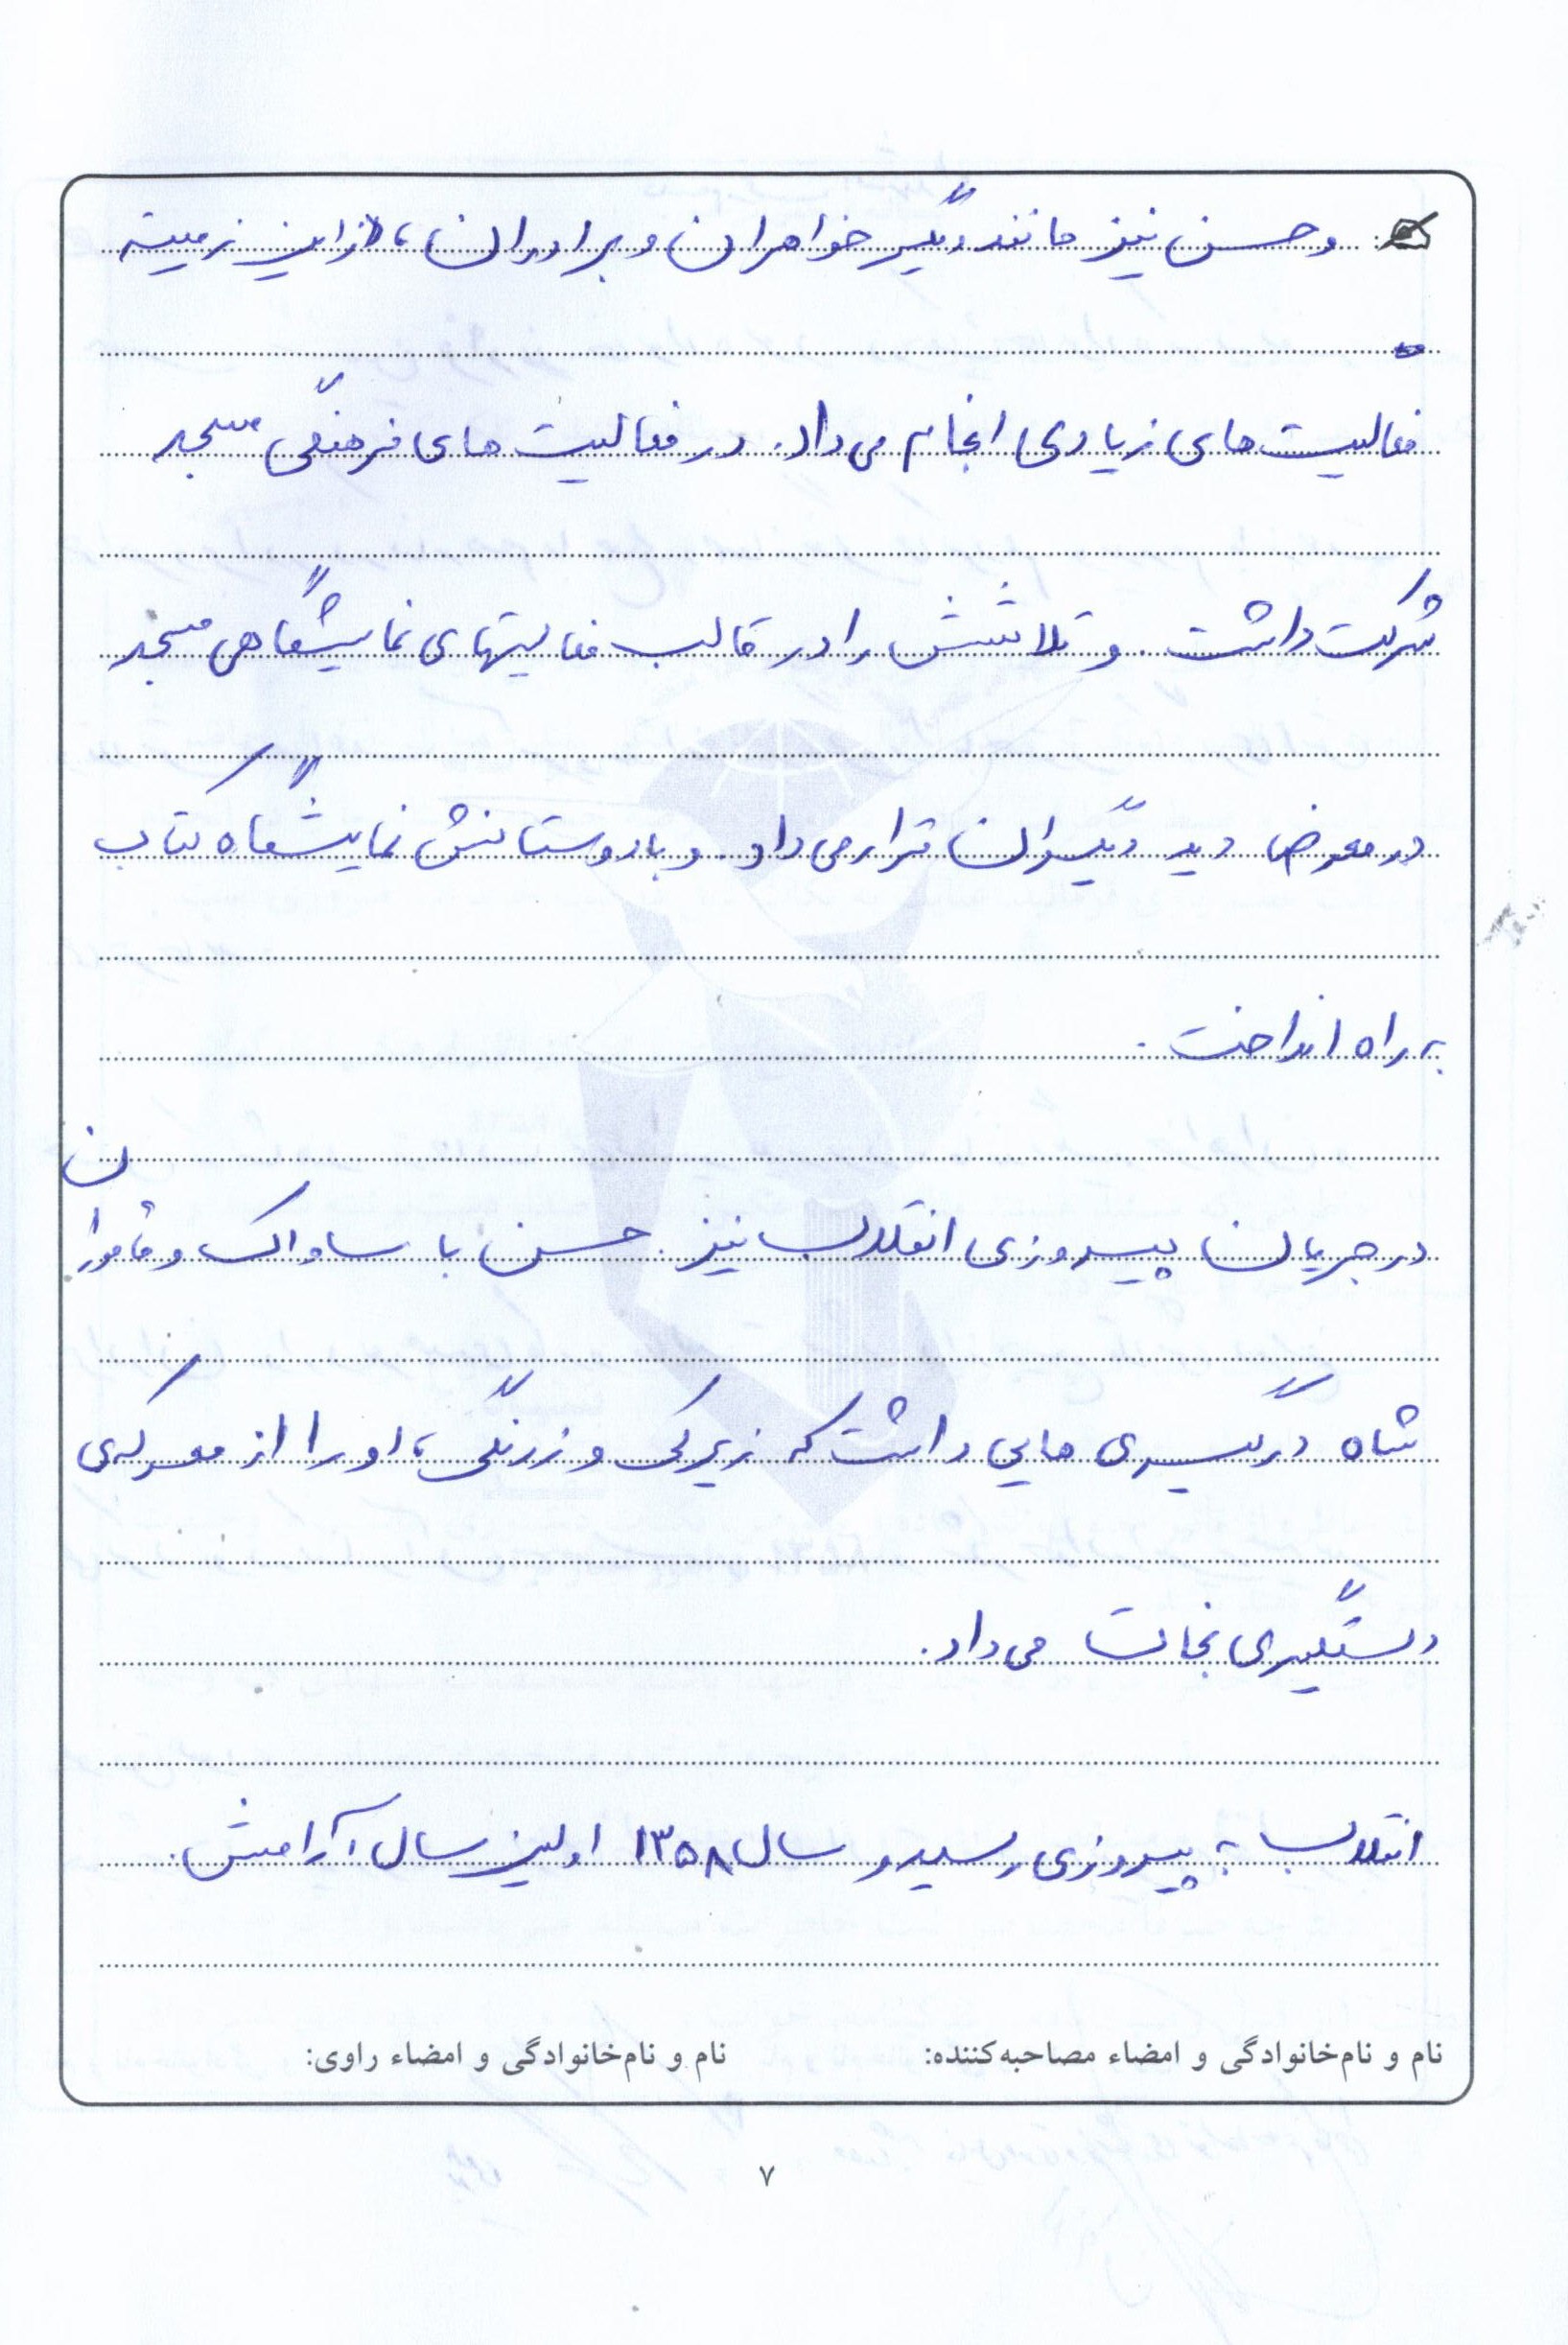 و حسن نیز مانند دیگر خواهران و برادران، از این زمینه
فعالیت های زیادی انجام می داد. در فعالیت های فرهنگی مسجد
شرکت داشت. و تلاشش را در قالب فعالیتهای نمایشگاهی مسجد
در معرض دید دیگران قرار می داد. و با دوستانش نمایشگاه کتاب
به راه انداخت.
در جریان پیروزی انقلاب نیز. حسن با ساواک و ماموران
شاه درگیری هایی داشت که زیرکی و زرنگی، او را از معرکه ی
دستگیری نجات می داد.
انقلاب به پیروزی رسید و سال ۱۳۵۸ اولین سال آرامش.
نام و نام‌خانوادگی و امضاء مصاحبه‌کننده: نام و نام‌خانوادگی و امضاء راوی:
۷